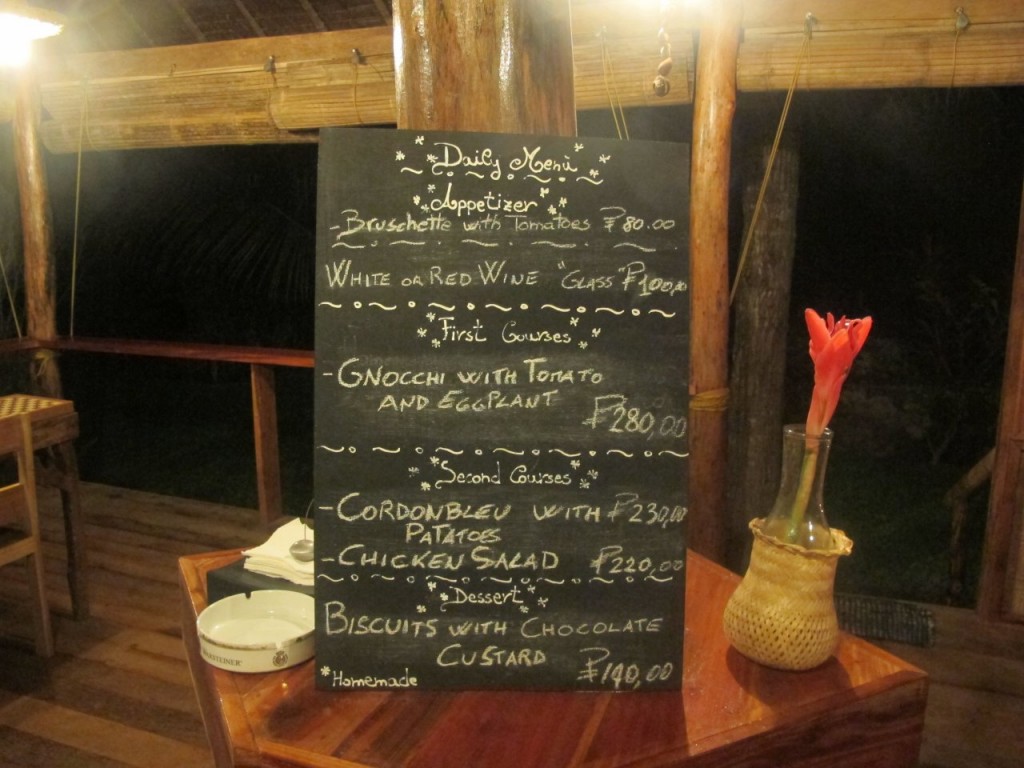 Daily Menù
Appetizer
- Bruschette with Tomatoes ₱80.00
WHITE OR RED WINE "GLASS" ₱100,00
First Courses
- GNOCCHI WITH TOMATO
AND EGGPLANT
₱280,00
Second Courses
- CORDONBLEU WITH ₱230,00
PATATOES
- CHICKEN SALAD ₱220,00
Dessert
BISCUITS WITH CHOCOLATE
CUSTARD
₱140,00
*Homemade